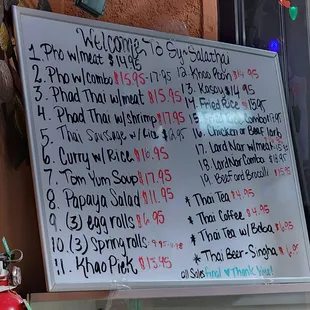 Welcome To Sy-Salathai
1. Pho w/meat $14.95
2. Pho w/combo $15.95-17.95
3. Phad Thai w/meat $15.95
4. Phad Thai w/shrimp $17.95
5. Thai Sausage w/Rice
6. Curry w/Rice $16.95
7. Tom Yum Soup $17.95
8. Papaya Salad $11.95
9. (3) egg rolls $6.95
10. (3) Spring rolls
11. Khao Piek $13.95
12. Khao Poon $14.95
13. Kasoy $14.95
14. Fried Rice
16. Chicken or Beef larb
17. Lard Nar w/meat
18. lard Nar Combo
19. Beef and Brocoli $15.95
* Thai Tea $4.95
* Thai Coffee $4.95
* Thai Tea w/ Boba
* Thai Beer-Singha
all Sales final ♥ Thank You!